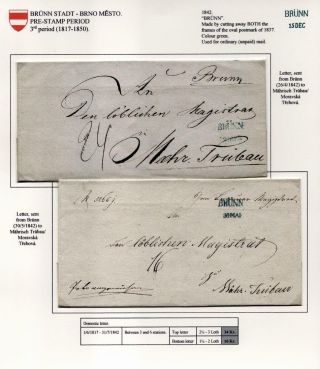 BRÜNN STADT - BRNO MĚSTO.
PRE-STAMP PERIOD
3rd period (1817-1850).
1842.
"BRÜNN"
Made by cutting away BOTH the
frames of the oval postmark of 1837.
Colour green.
Used for ordinary (unpaid) mail.
BRÜNN
15 DEC
Letter, sent
from Brünn
(26/4/1842) to
Mährisch Trübau/
Moravská
Třebová.
An
Brünn
Den löblichen Magistrat
BRÜNN
Mähr. Trübau
Letter, sent
from Brünn
(30/5/1842) to
Mährisch Trübau/
Moravská
Třebová.
BRÜNN
den löblichen Magistrat
16
Mähr. Trübau
Domestic letter.
1/6/1817 - 31/7/1842
Between 3 and 6 stations.
Top letter
2½ - 3 Loth
24 Kr.
Bottom letter
1½ - 2 Loth
16 Kr.